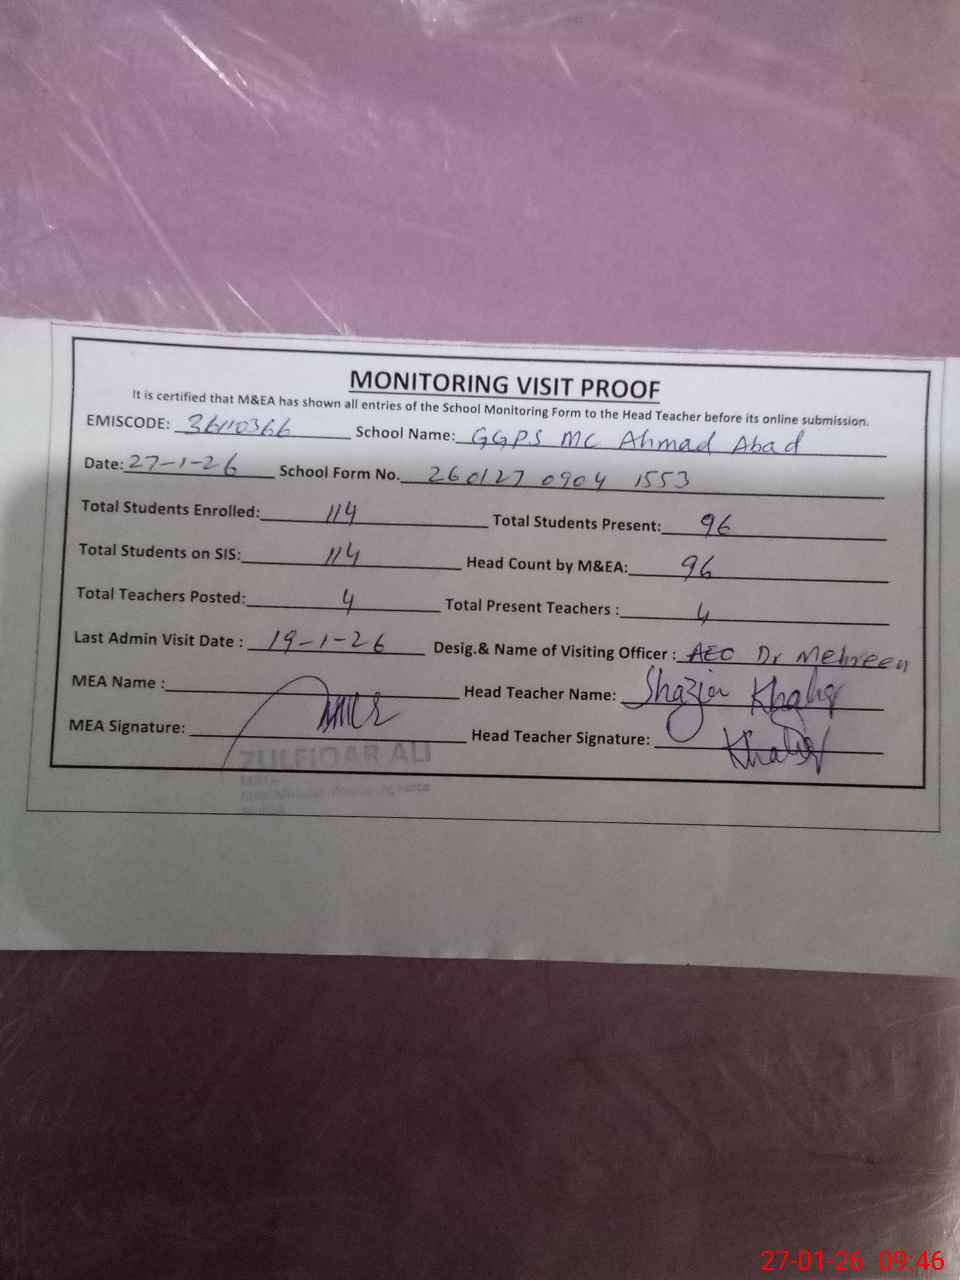 MONITORING VISIT PROOF
It is certified that M&EA has shown all entries of the School Monitoring Form to the Head Teacher before its online submission.
EMISCODE: 36110366 School Name: GGPS MC Ahmad Abad
Date: 27-1-26 School Form No. 260127 0904 1553
Total Students Enrolled: 114 Total Students Present: 96
Total Students on SIS: 114 Head Count by M&EA: 96
Total Teachers Posted: 4 Total Present Teachers : 4
Last Admin Visit Date : 19-1-26 Desig.& Name of Visiting Officer : AEO Dr Mehreen
MEA Name : Head Teacher Name: Shazia
MEA Signature: Head Teacher Signature:
ZULFIQAR ALI
27-01-26 09:46